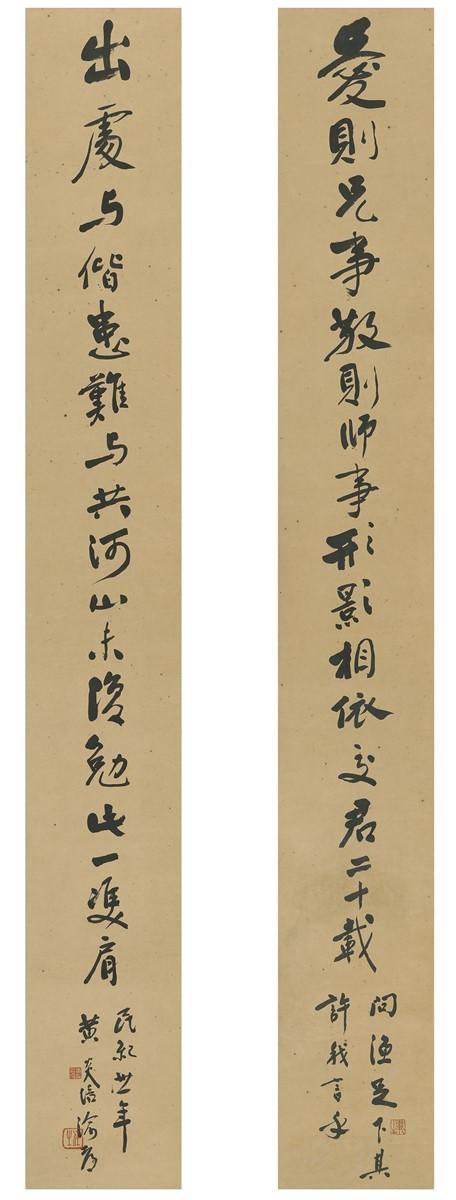 愛則兄事敬則師事形影相依交君二十載
問漁足下其
許我言乎
出處与偕患難与共河山未復勉此一雙肩
民紀卅年
黄炎培